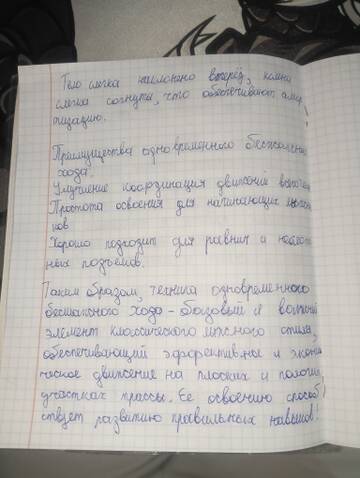 Тело слегка наклонено вперёд, колени
слегка согнуты, что обеспечивает амор
тизацию.
Преимущества одновременного бесшажного
хода.
Улучшение координации движения
Простота освоения для начинающих лыжни
ков
Хорошо подходит для равнин и
ных подъемов.
Таким образом, техника одновременного
бесшажного хода - базовый и важный
элемент классического лыжного стиля,
обеспечивающий эффективные и эконо
ческое движение на плоских и пологих
участках трассы. Ее освоению способ
ствует развитию правильных навыков!